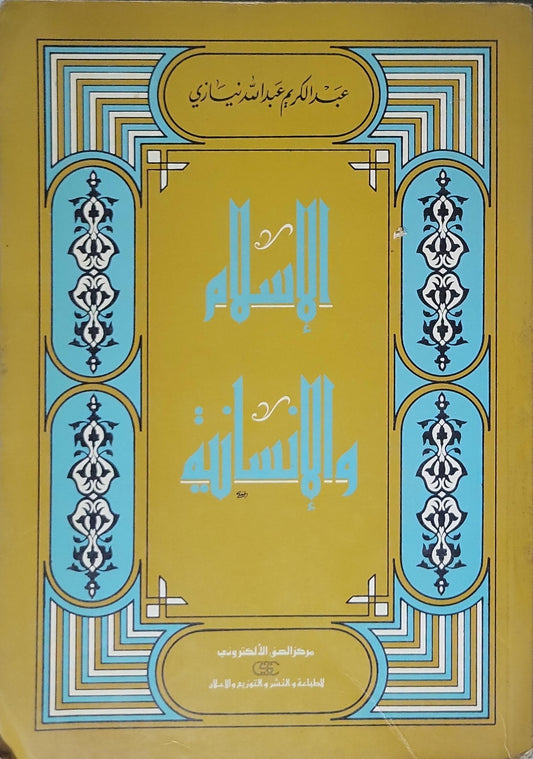 عبد الكريم عبد الله نيازي
الإسلام
والإنسانية
مركز الصف الألكتروني
للطباعة والنشر والتوزيع والإعلان